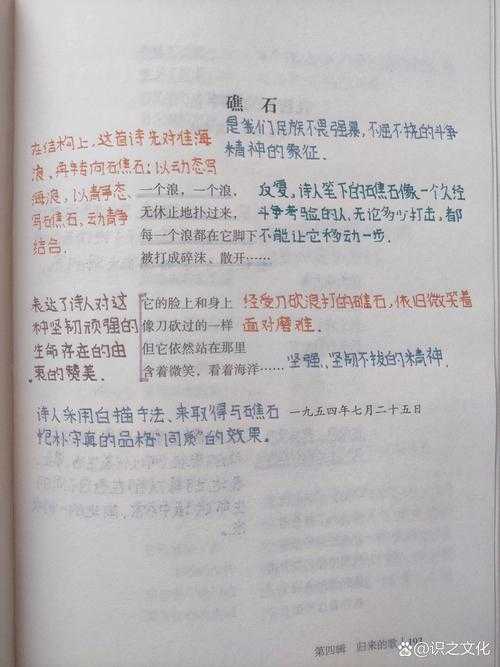 礁 石
是我们民族不畏强暴，不屈不挠的斗争
精神的象征．
在结构上，这首诗先对准海
浪、再转向礁石；以动态写
海浪，以静态
写礁石、动静
结合．
一个浪，一个浪，
无休止地扑过来，
每一个浪都在它脚下
被打成碎沫、散开……
反复，诗人笔下的礁石像一个久经
斗争考验的人、无论多少打击，都
不能让它移动一步．
表达了诗人对这
种坚韧顽强的
生命存在的由
衷的赞美．
它的脸上和身上
像刀砍过的一样
但它依然站在那里
含着微笑，看着海洋……
经受刀砍浪打的礁石，依旧微笑着
面对磨难．
坚强、坚韧不拔的精神．
诗人采用白描手法、来取得与礁石
朴字真的品格"同质"的效果。
一九五四年七月二十五日
第四辑 归来的歌
识之文化